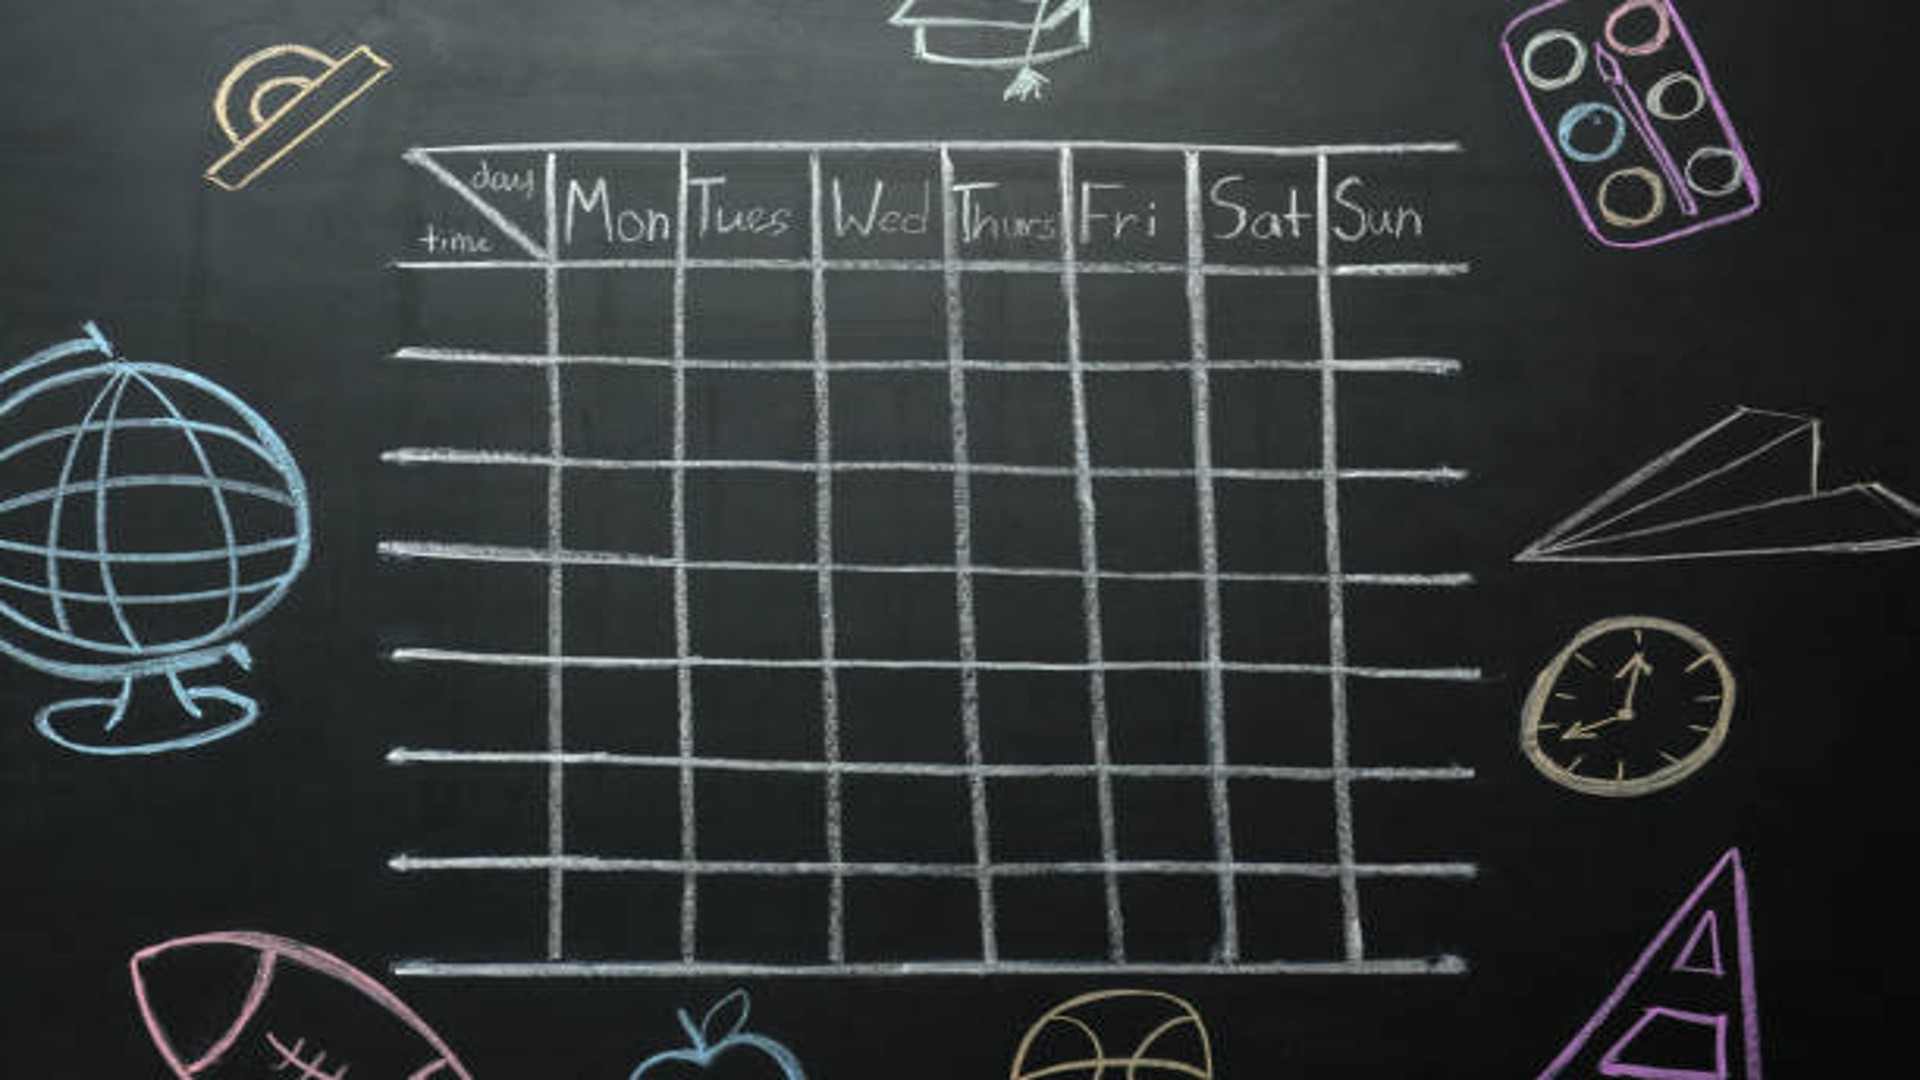 day
time
Mon Tues Wed Thurs Fri Sat Sun
A